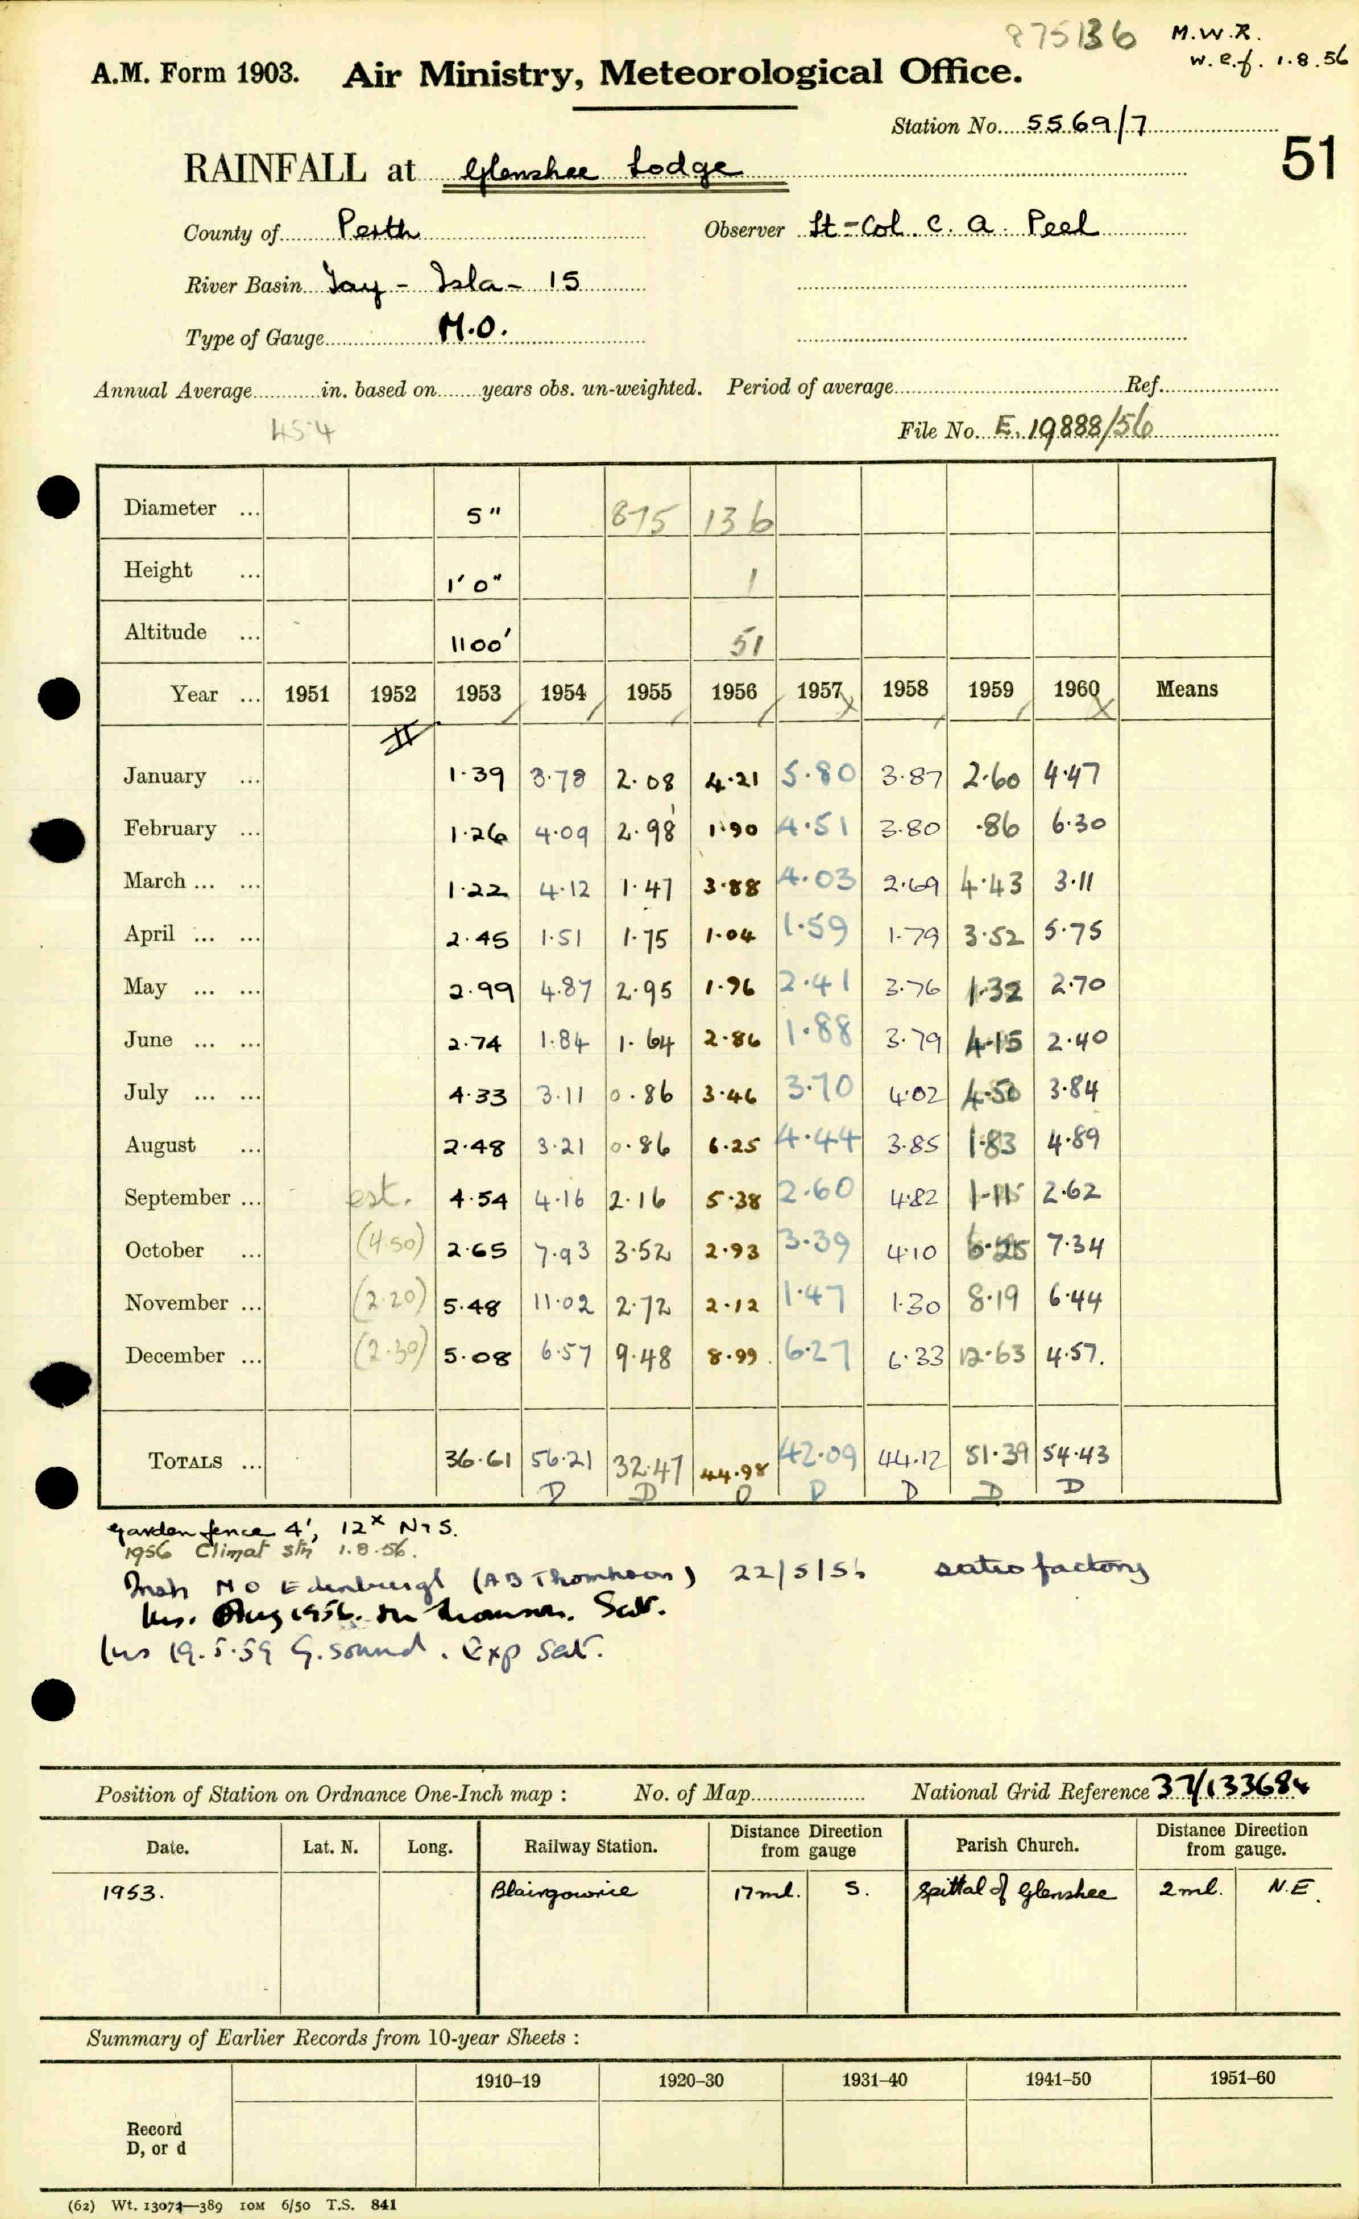 875136 M.W.R.
w.e.f. 1.8.56
A.M. Form 1903. Air Ministry, Meteorological Office.
Station No. 5569/7
51
RAINFALL at Glenshee Lodge
County of Perth Observer Lt-Col. C. A. Peel
River Basin Tay - Isla - 15
Type of Gauge M.O.
Annual Average in. based on years obs. un-weighted. Period of average Ref.
45.4
File No. E. 19888/56
Diameter ... 5" 875 136
Height ... 1'0" 1
Altitude ... 1100' 51
Year ... 1951 1952 1953 1954 1955 1956 1957 1958 1959 1960 Means
January ... 1.39 3.78 2.08 4.21 5.80 3.87 2.60 4.47
February ... 1.26 4.09 2.98 1.90 4.51 3.80 .86 6.30
March ... ... 1.22 4.12 1.47 3.88 4.03 2.69 4.43 3.11
April ... ... 2.45 1.51 1.75 1.04 1.59 1.79 3.52 5.75
May ... ... 2.99 4.87 2.95 1.96 2.41 3.76 1.32 2.70
June ... ... 2.74 1.84 1.64 2.86 1.88 3.79 4.15 2.40
July ... ... 4.33 3.11 0.86 3.46 3.70 4.02 4.50 3.84
August ... 2.48 3.21 0.86 6.25 4.44 3.85 1.83 4.89
September ... est. 4.54 4.16 2.16 5.38 2.60 4.82 1.15 2.62
October ... (4.50) 2.65 7.93 3.52 2.93 3.39 4.10 6.25 7.34
November ... (2.20) 5.48 11.02 2.72 2.12 1.47 1.30 8.19 6.44
December ... (2.30) 5.08 6.57 9.48 8.99 6.27 6.33 12.63 4.57.
TOTALS ... 36.61 56.21 32.47 44.98 42.09 44.12 51.39 54.43
D D D D D D D
Garden fence 4', 12x N+S.
1956 Climat Stn 1.8.56.
Insp M O Edinburgh (A B Thomson) 22/5/56 satisfactory
Ins. Aug 1956. Sat.
Ins 19.5.59 G. sound. Exp Sat.
Position of Station on Ordnance One-Inch map : No. of Map National Grid Reference 37/133684
Date. Lat. N. Long. Railway Station. Distance from Direction gauge Parish Church. Distance from Direction gauge.
1953. Blairgowrie 17 ml. S. Spittal of Glenshee 2 ml. N.E.
Summary of Earlier Records from 10-year Sheets :
1910–19 1920–30 1931–40 1941–50 1951–60
Record
D, or d
(62) Wt. 13074—389 10M 6/50 T.S. 841